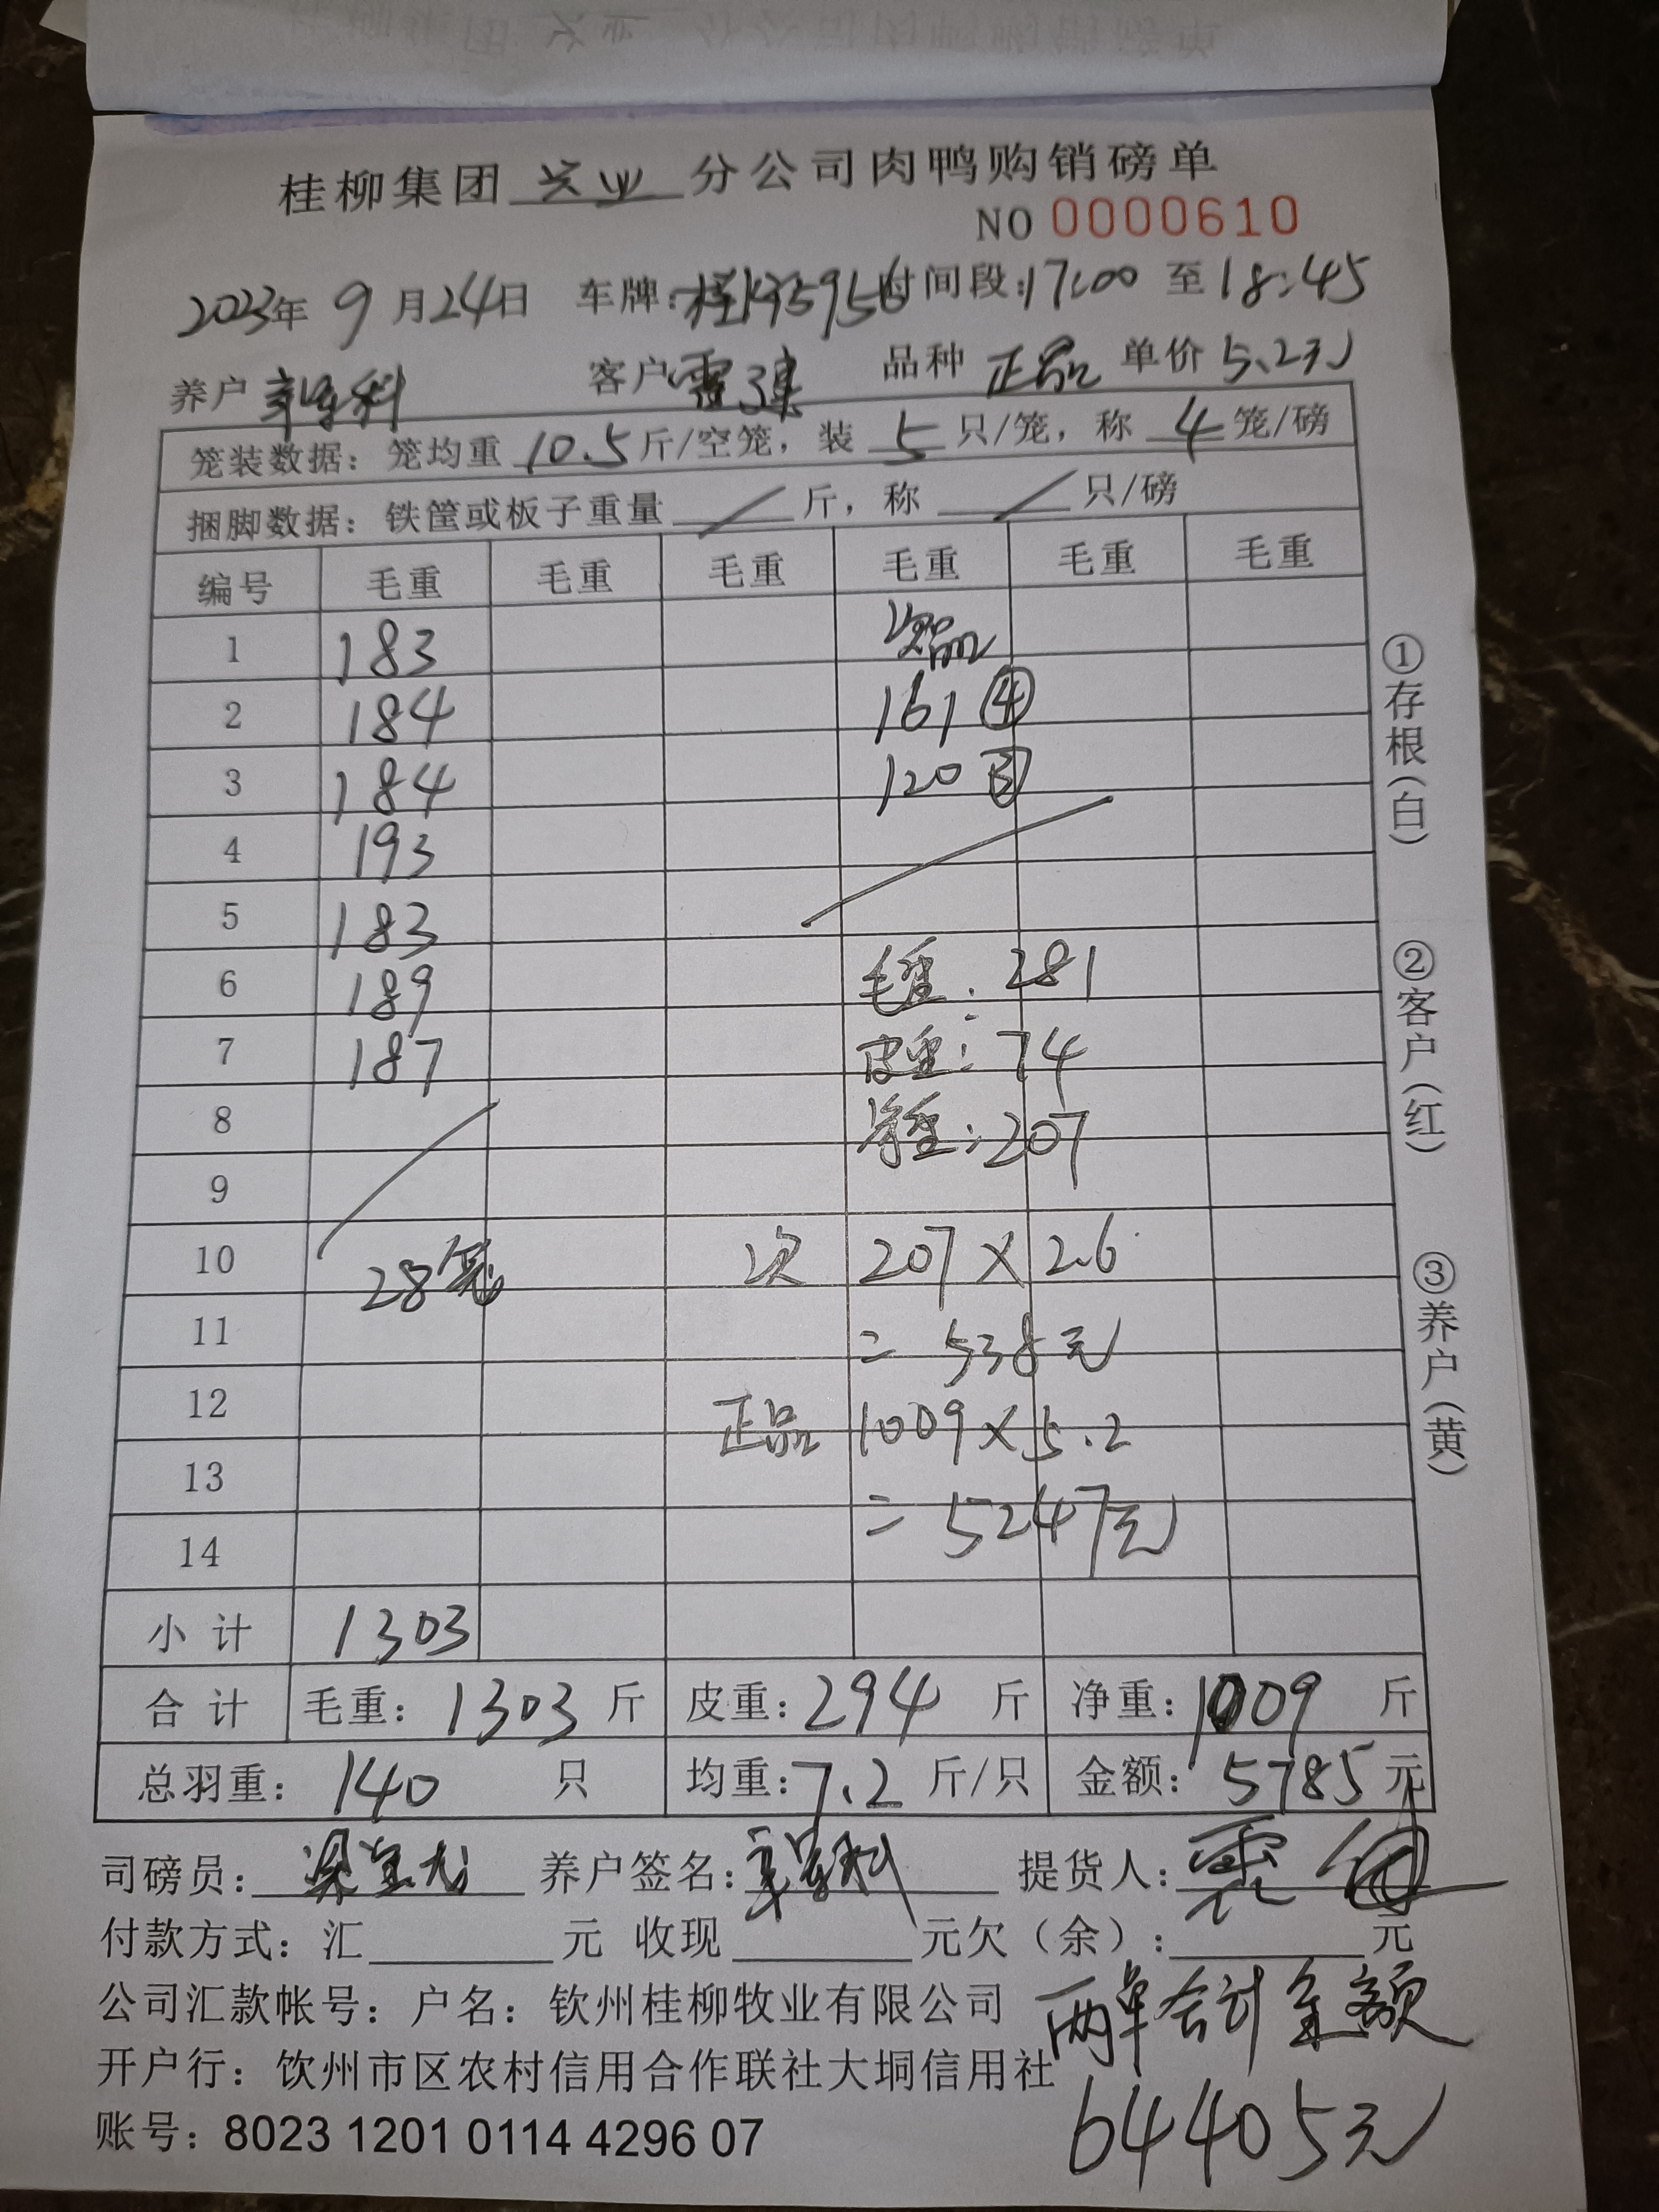 桂柳集团 兴业 分公司肉鸭购销磅单
NO 0000610
2023年 9 月 24 日 车牌: 时间段: 17:00 至 18:45
养户 客户 品种 正品 单价 5.2元
笼装数据: 笼均重 10.5 斤/空笼, 装 5 只/笼, 称 4 笼/磅
捆脚数据: 铁筐或板子重量 / 斤, 称 / 只/磅
编号 毛重 毛重 毛重 毛重 毛重 毛重
1 183 次品
2 184 161 ④
3 184 120 ③
4 193
5 183
6 189 毛重: 281
7 187 皮重: 74
8 净重: 207
9
10 28笼 次 207 × 2.6
11 = 538元
12 正品 1009 × 5.2
13 = 5247元
14
小计 1303
合计 毛重: 1303 斤 皮重: 294 斤 净重: 1009 斤
总羽重: 140 只 均重: 7.2 斤/只 金额: 5785 元
司磅员: 养户签名: 提货人:
付款方式: 汇 元 收现 元欠(余): 元
公司汇款帐号: 户名: 钦州桂柳牧业有限公司
两单合计金额
开户行: 钦州市区农村信用合作联社大垌信用社
64405元
账号: 8023 1201 0114 4296 07
①存根(白)
②客户(红)
③养户(黄)